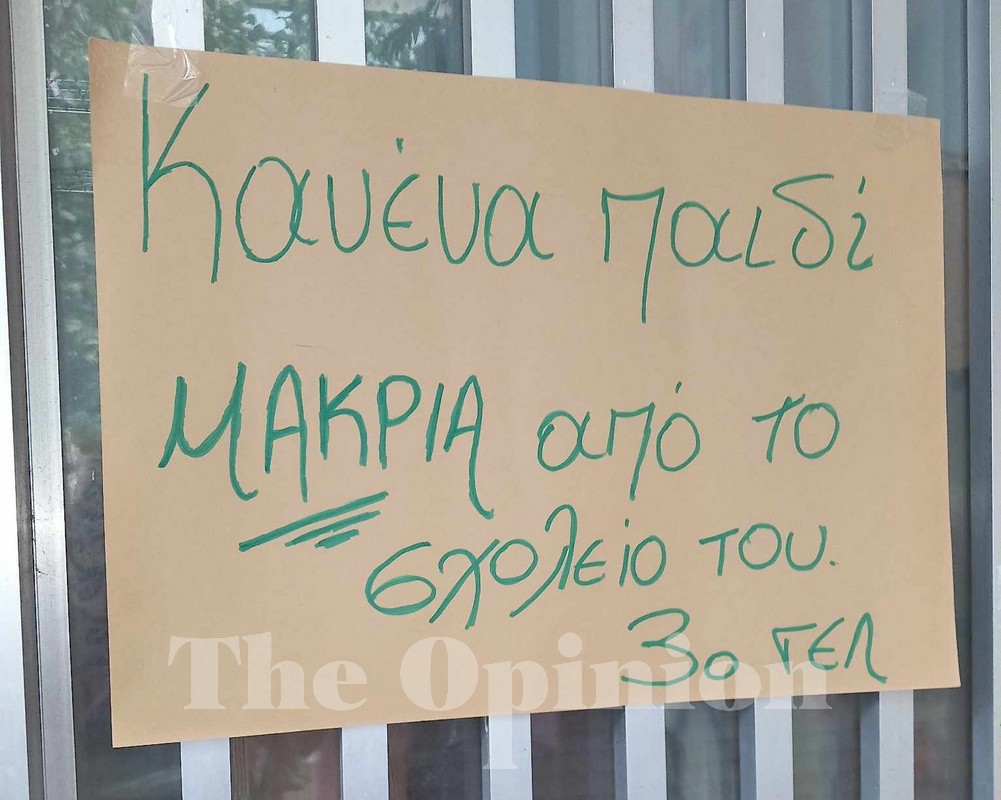 Κανένα παιδί
ΜΑΚΡΙΑ από το
σχολείο του.
3ο ΓΕΛ
The Opinion